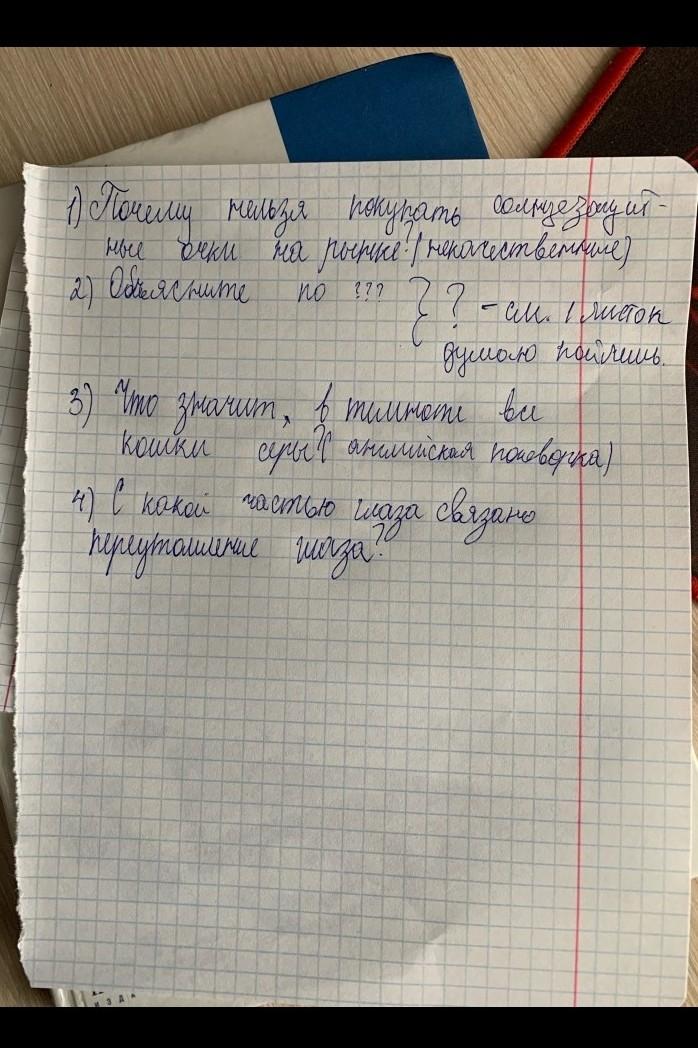 1) Почему нельзя покупать солнцезащит-
ные очки на рынке? (некачественные)
2) Объясните по ??? } ? - см. 1 листок
думаю поймёшь.
3) Что значит, в темноте все
кошки серы? (английская поговорка)
4) С какой частью глаза связано
переутомление глаза?
ИЗДА